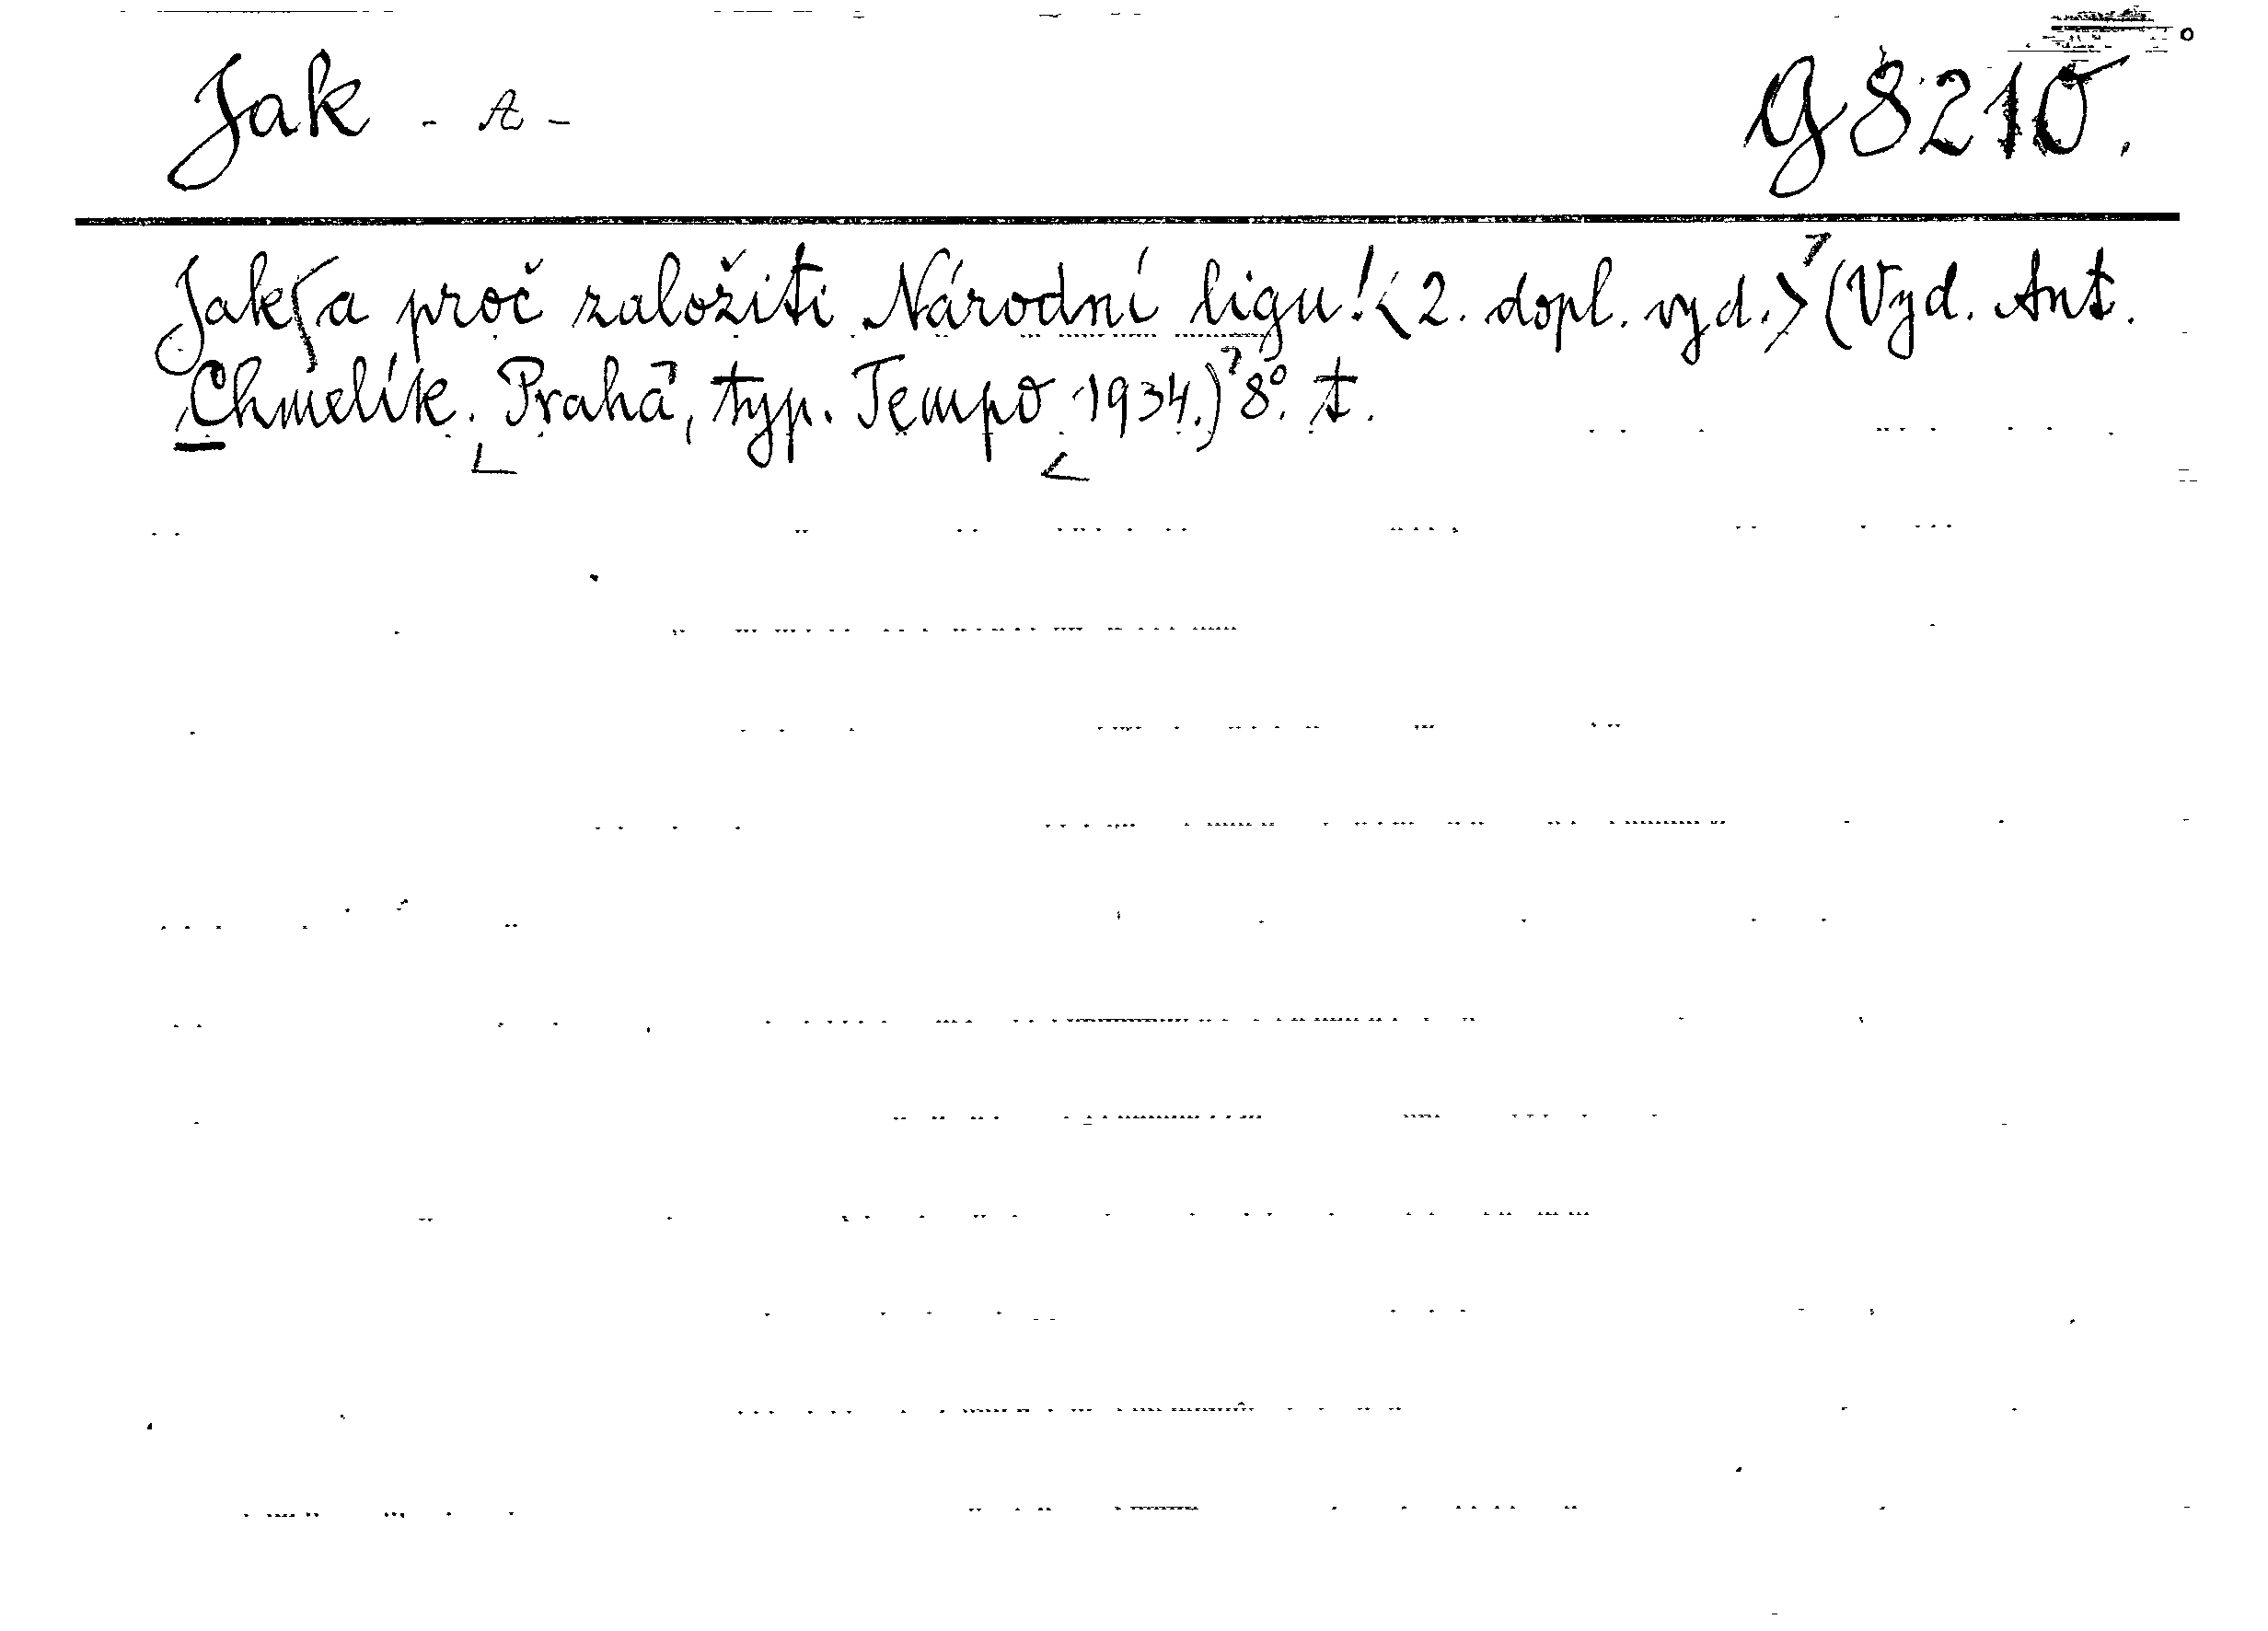 Jak - A - G 8210.
Jak a proč založiti Národní ligu! <2. dopl. vyd.> (Vyd. Ant.
Chmelík. Praha, typ. Tempo 1934.) 8°. t.